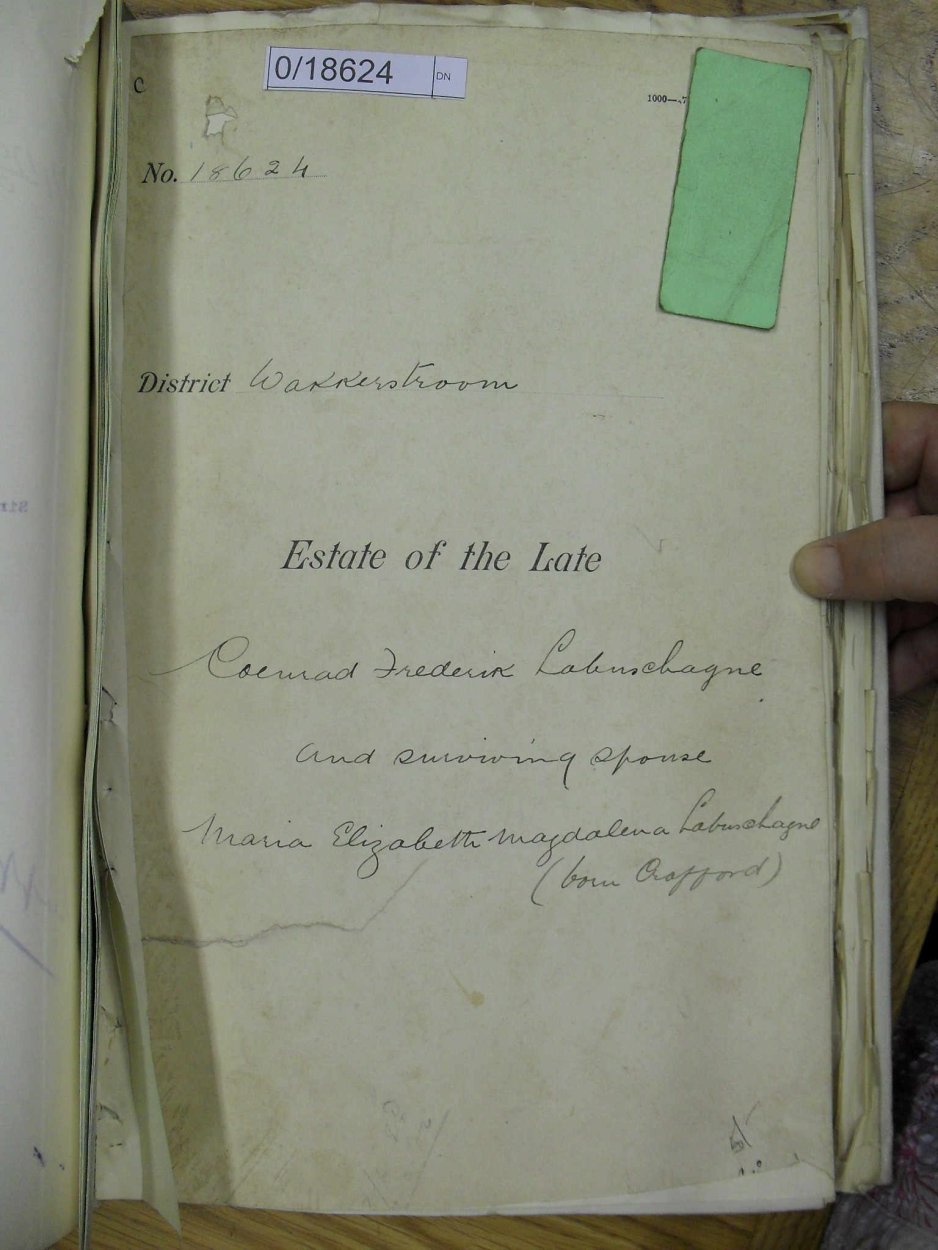 0/18624 DN
C
1000—
No. 18624
District Wakkerstroom
Estate of the Late
Coenrad Frederik Labuschagne
and surviving spouse
Maria Elizabeth Magdalena Labuschagne
(born Crafford)